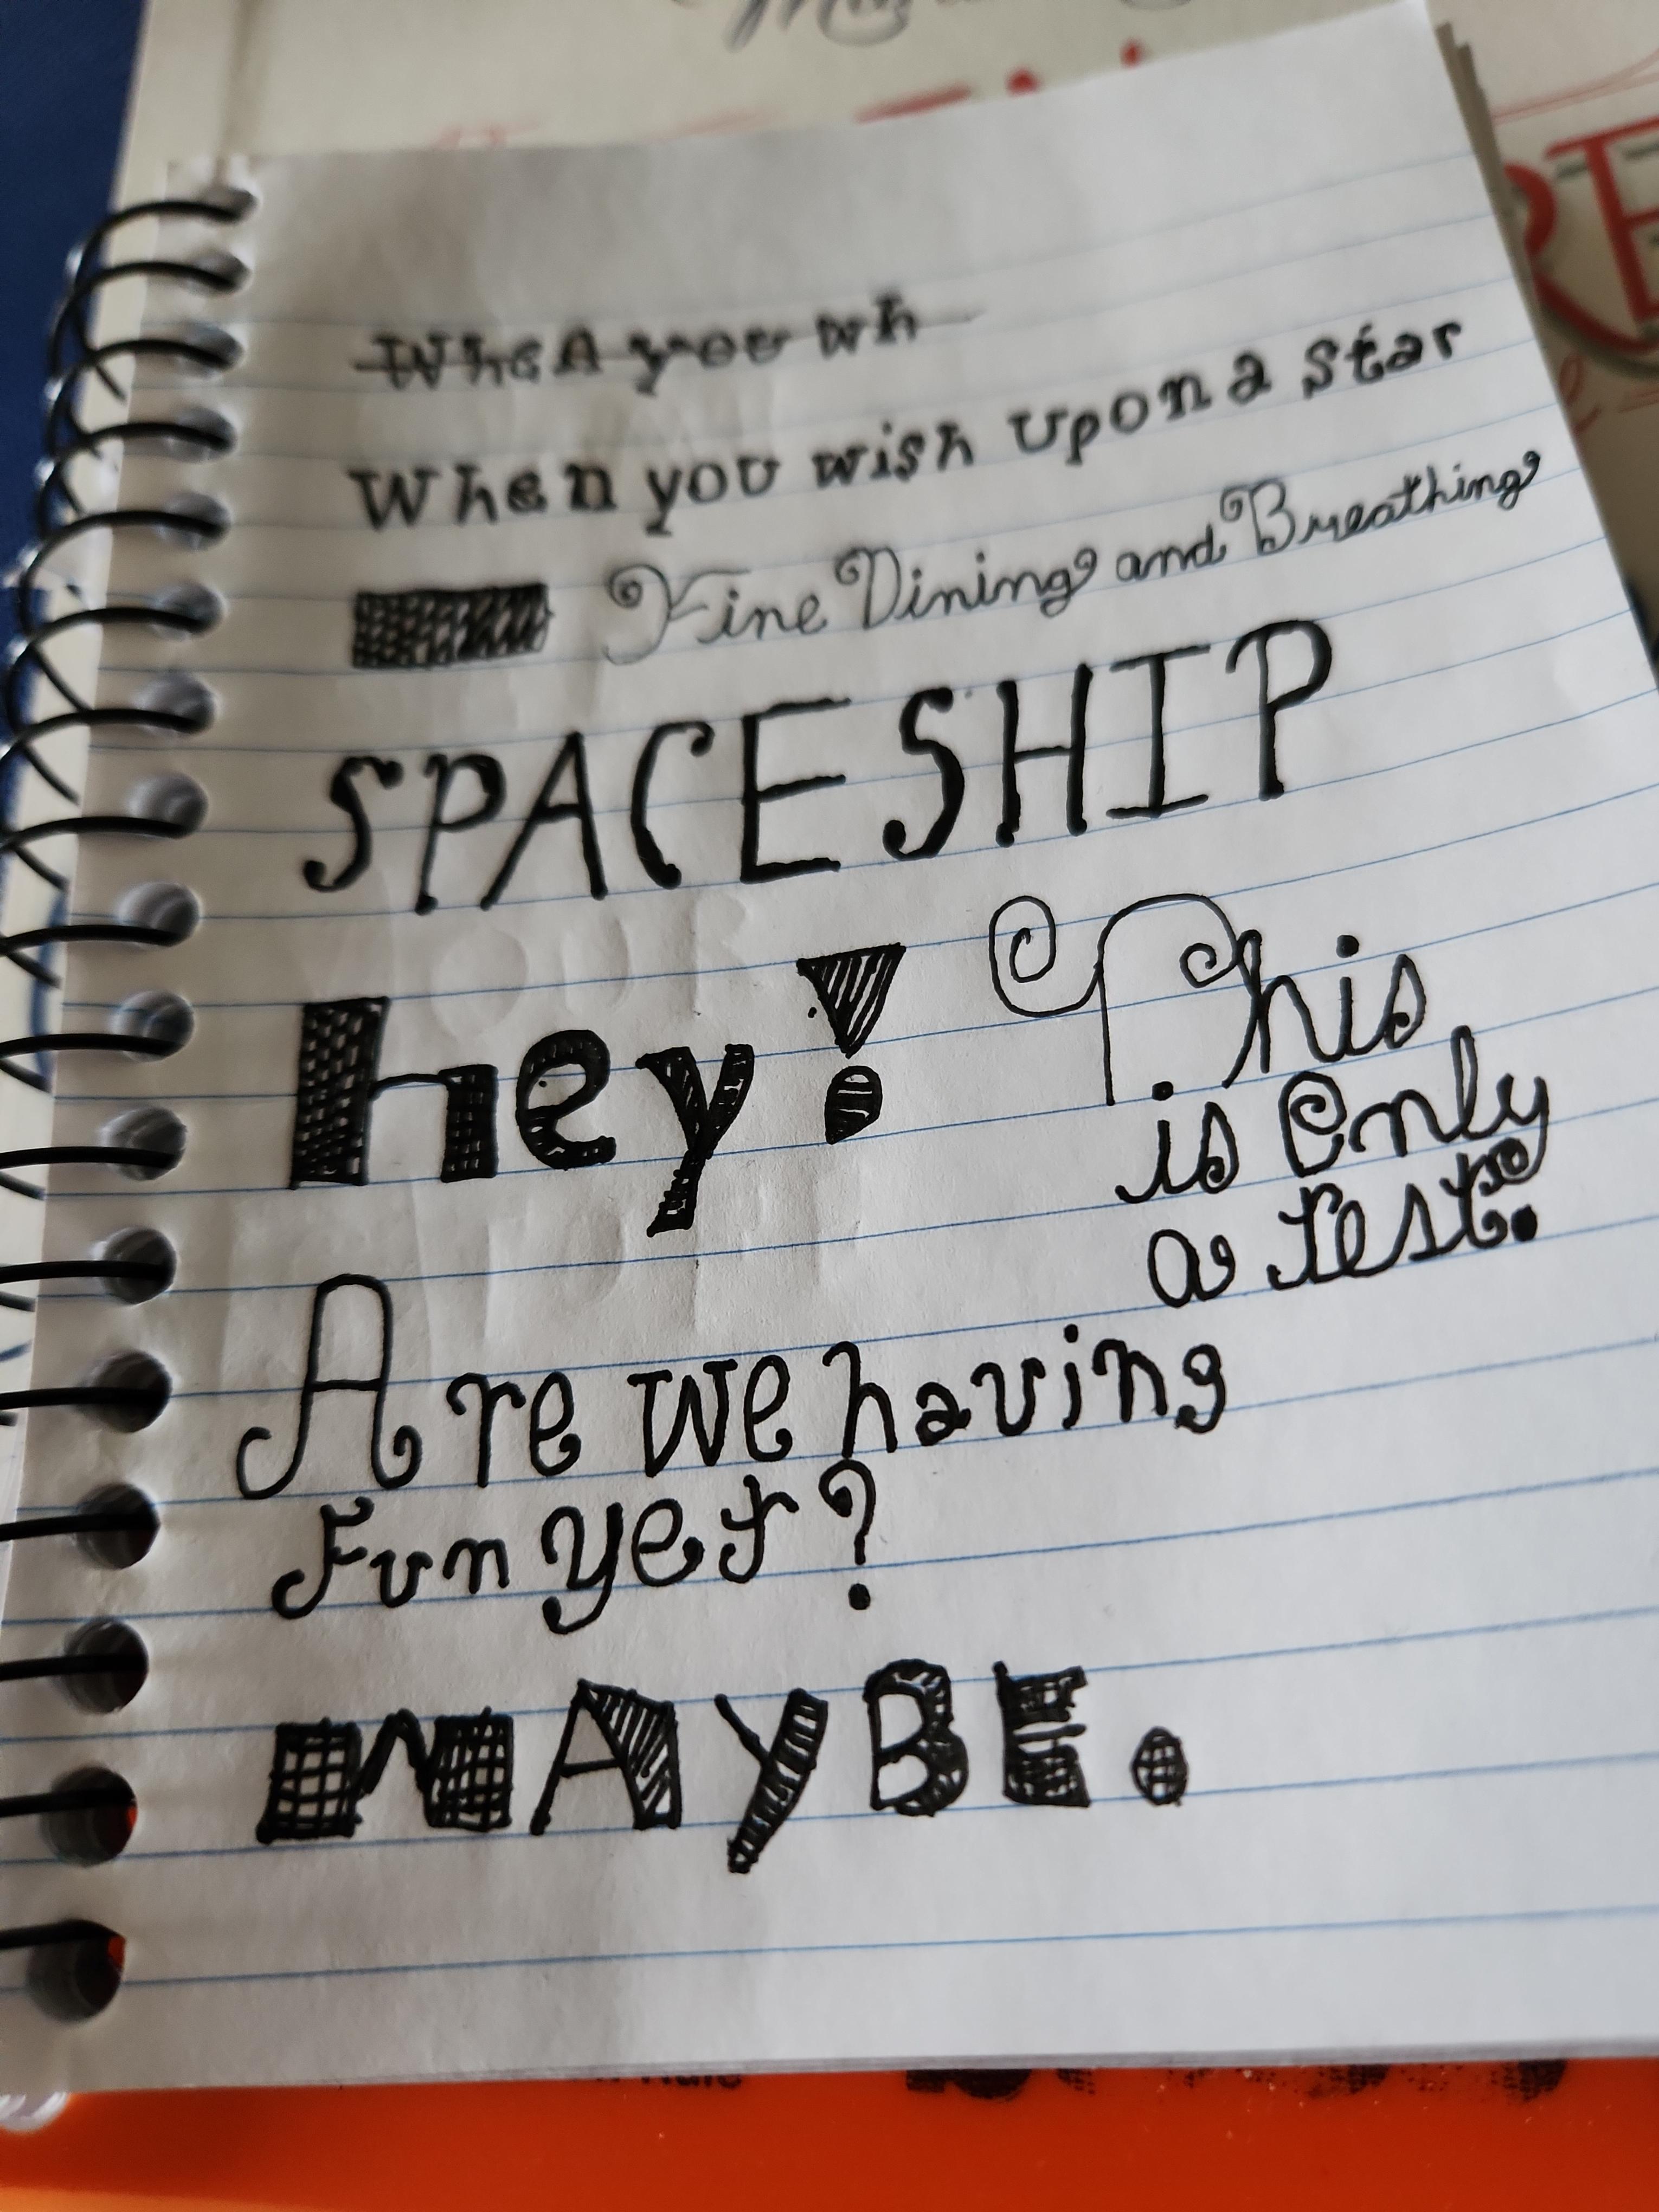 When you wh
When you wish upon a star
Fine Dining and Breathing
SPACESHIP
hey!
This
is Only
a Test.
Are we having
Fun yet?
MAYBE.